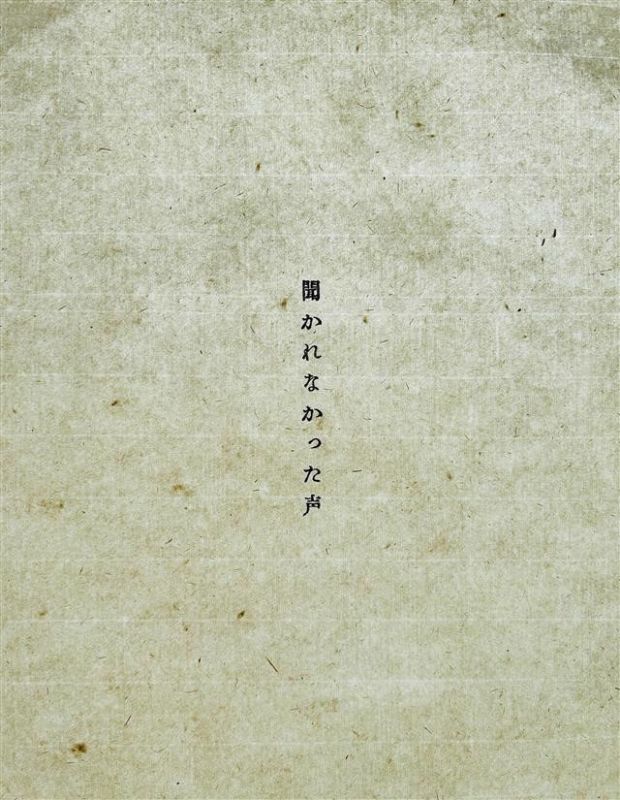 聞かれなかった声